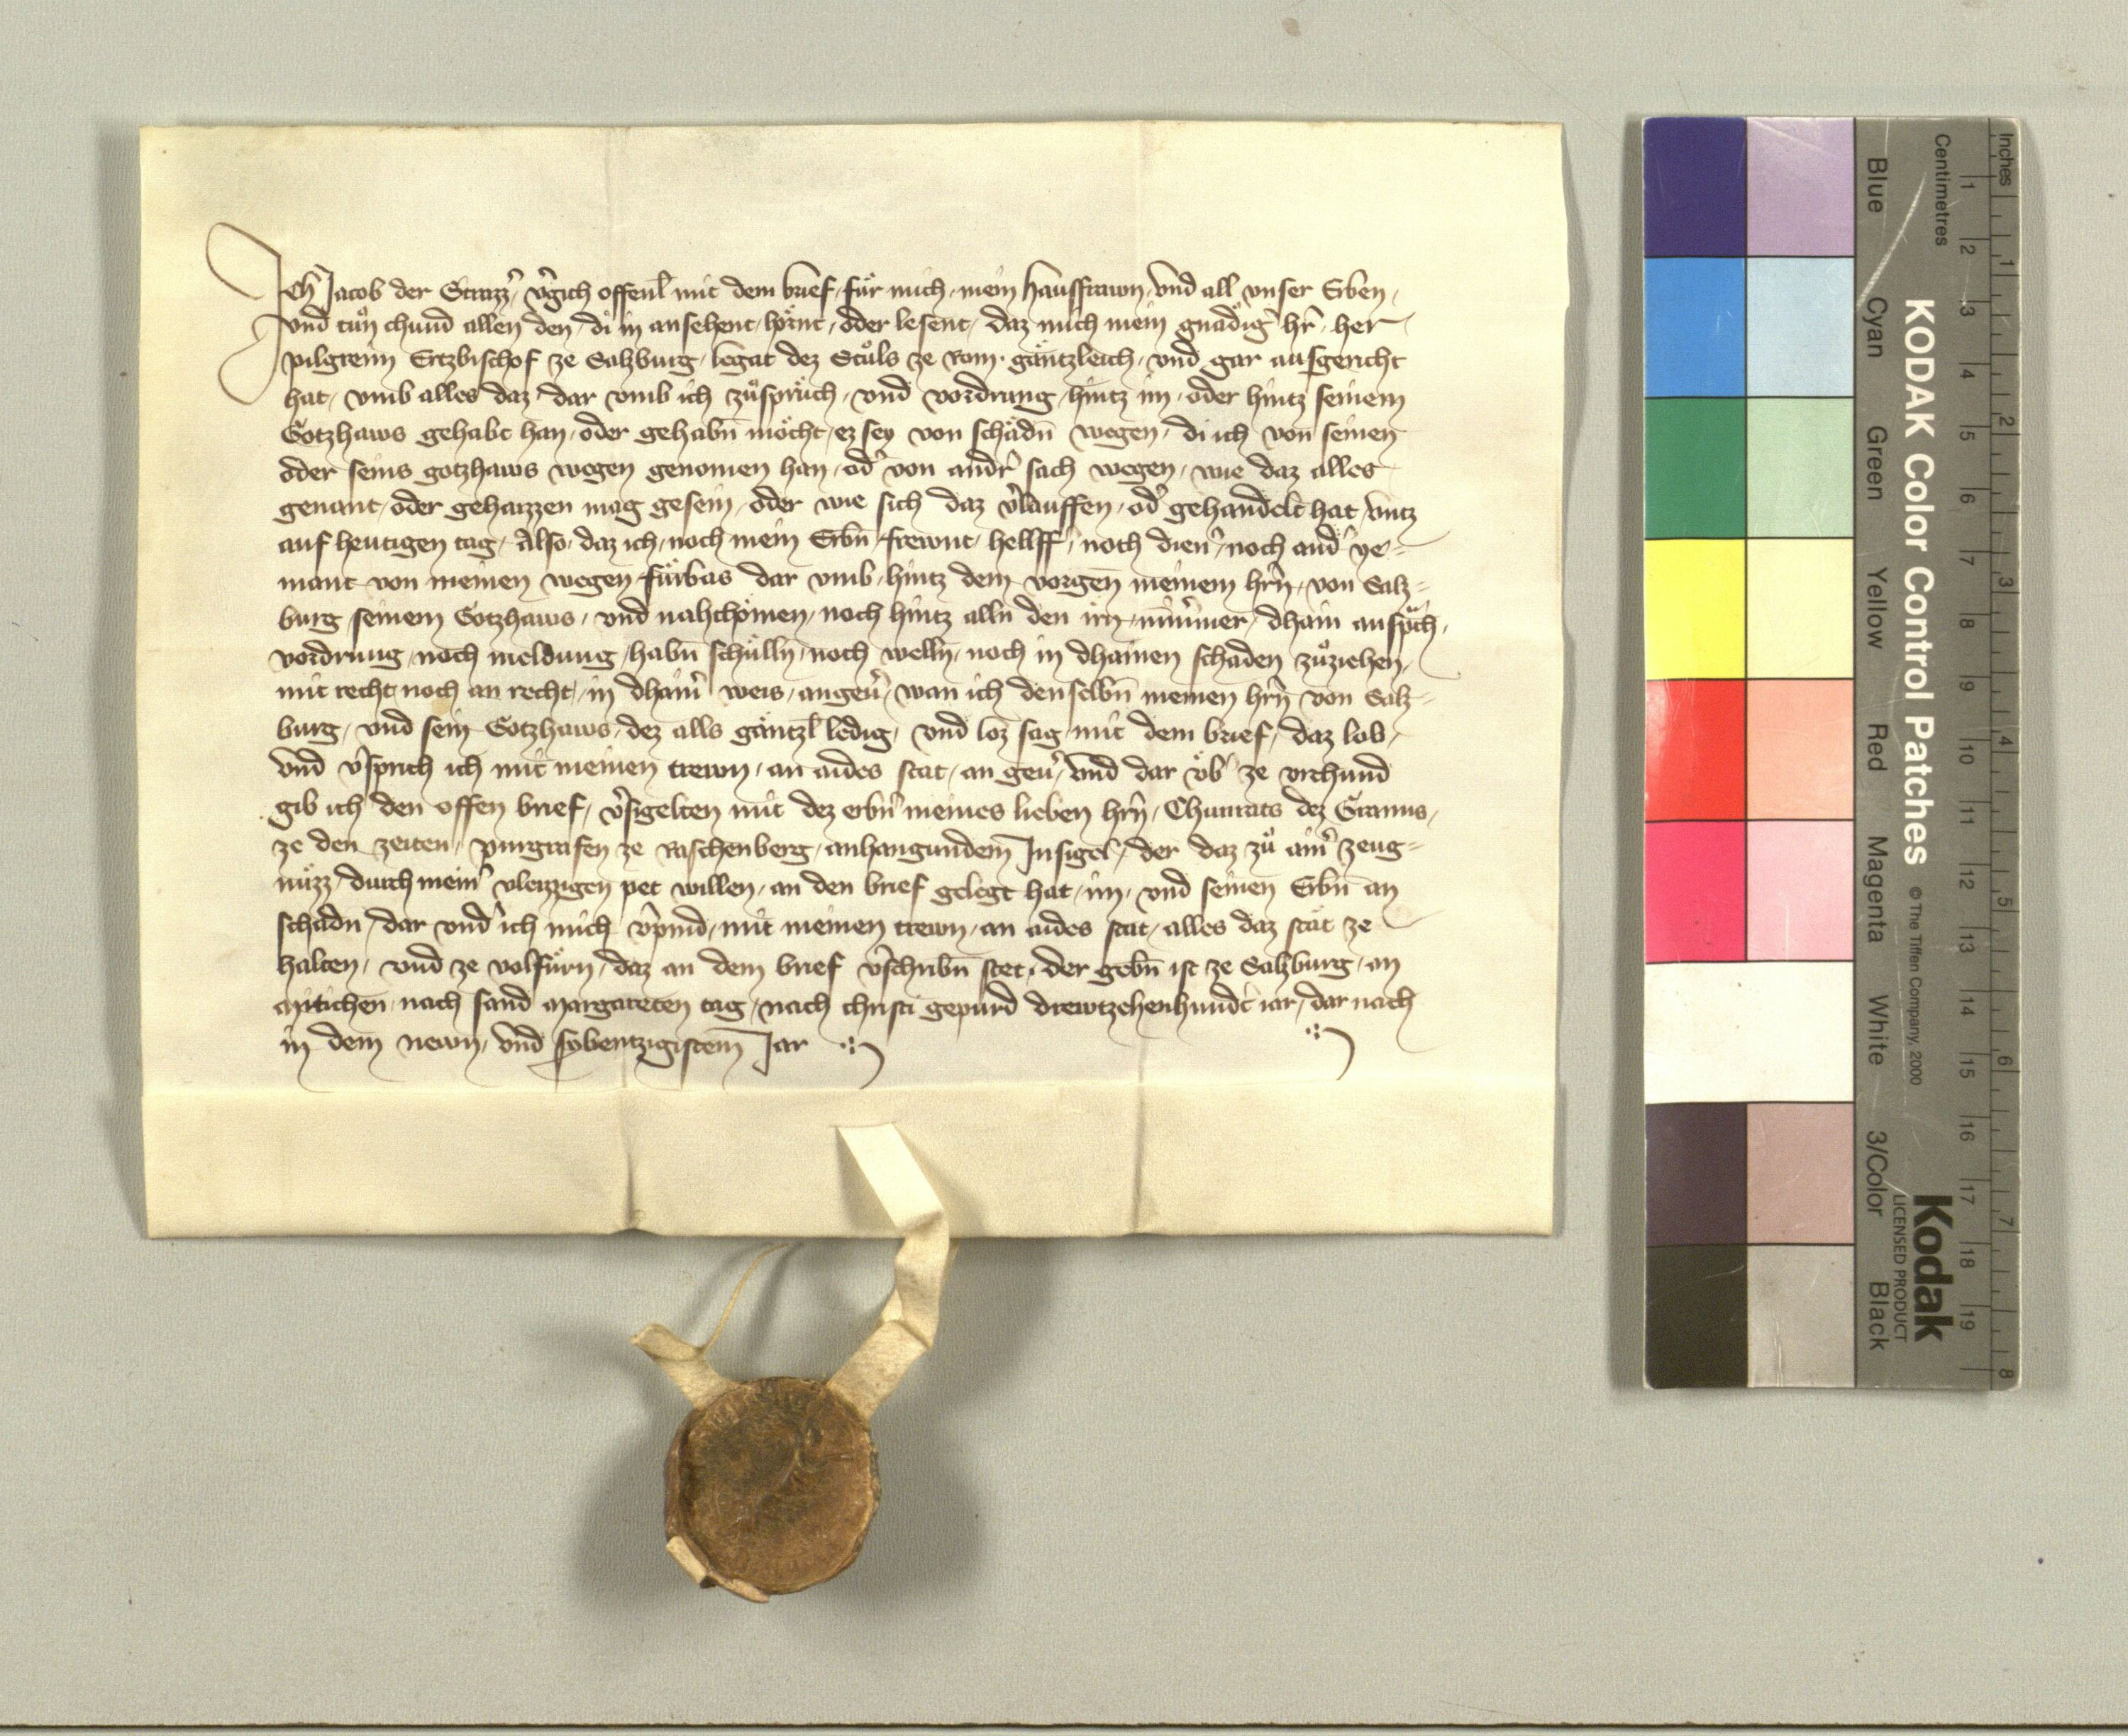 Ich Jacob der Strazzˀ vˀgich offenl̄ mit dem brief, fuͤr mich, mein hausfrawn, vnd all vnser Erben,
vnd tuͦn chund allen den, di in ansehent, hoͤrnt, oder lesent, daz mich mein gnaͤdigˀ hˀr, her
pilgreim Ertzbischof ze Salzburg, legat dez Stuͦls ze Rom, gaͤntzleich, vnd gar ausgericht
hat, vmb alles daz, dar vmb ich zuͦspruͤch, vnd vordrung, hintz im, oder hintz seinem
Gotzhaws gehabt han, oder gehabn̄ moͤcht, ez sey von schaͤdn̄ wegen, di ich von seinen
oder seins gotzhaws wegen genomen han, odˀ von andrˀ sach wegen, wie daz alles
genant, oder gehaizzen mag gesein, oder wie sich daz vˀlauffen, odˀ gehandelt hat, vntz
auf heutigen tag, Also, daz ich, noch mein Erbn̄ frewnt, hellffˀ, noch dienˀ, noch andˀ ye=
mant von meinen wegen fuͤrbas dar vmb, hintz dem vorgen̄ meinem hˀrn, von Salz=
burg, seinem Gotzhaws, vnd nahchomen, noch hintz alln̄ den irn, nimmer, dhain anspͤch,
vordrung, noch meldung, habn̄ schuͤlln̄, noch welln̄, noch in dhainen schaden zuͦziehen,
mit recht noch an recht, in dhainˀ weis, angeuˀ, wan ich denselbn̄ meinen hˀrn von Salz=
burg, vnd sein Gotzhaws, dez alls gaͤntzl̄ ledig, vnd loz sag, mit dem brief, daz lob,
vnd vˀsprich ich mit meinen trewn, an aides stat, an geuˀ, vnd dar vͤbˀ ze vrchund
gib ich den offen brief, vˀsigelten mit dez erbnˀ meines lieben hˀrn, Chunrats dez Granns,
ze den zeiten, purgrafen ze Raschenberg, anhangundem Insigel, der daz zuͦ aimˀ zeug=
nuͤzz, durch meinˀ vleizzigen pet willen, an den brief gelegt hat, im, vnd seinen Erbn̄ an
schadn̄, dar vndˀ ich mich vˀpind, mit meinen trewn, an aides stat, alles daz staͤt ze
halten, vnd ze volfuͤrn, daz an dem brief vˀschribn̄ stet, der gebn̄ ist ze Salzburg, an
mitichen, nach sand margareten tag, nach christi gepurd drewtzehenhundˀt iar, dar nach
in dem newn, vnd sybentzigistem Jar
KODAK Color Control Patches
© The Tiffen Company, 2000
Kodak
LICENSED PRODUCT
Blue Cyan Green Yellow Red Magenta White 3/Color Black
Centimetres
1 2 3 4 5 6 7 8 9 10 11 12 13 14 15 16 17 18 19
Inches
1 2 3 4 5 6 7 8